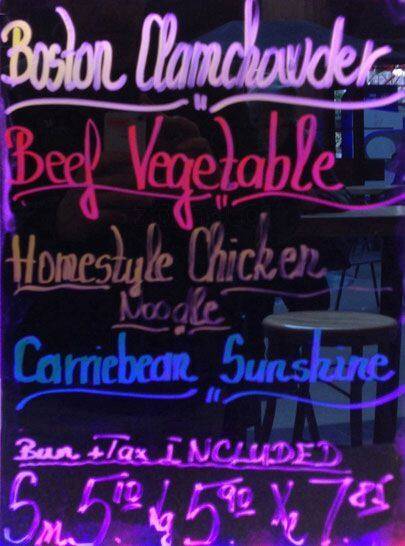 Boston Clamchowder
Beef Vegetable
Homestyle Chicken
Noodle
Carriebean Sunshine
Bun + Tax INCLUDED
Sm 5.10 Lg 5.90 XL 7.85